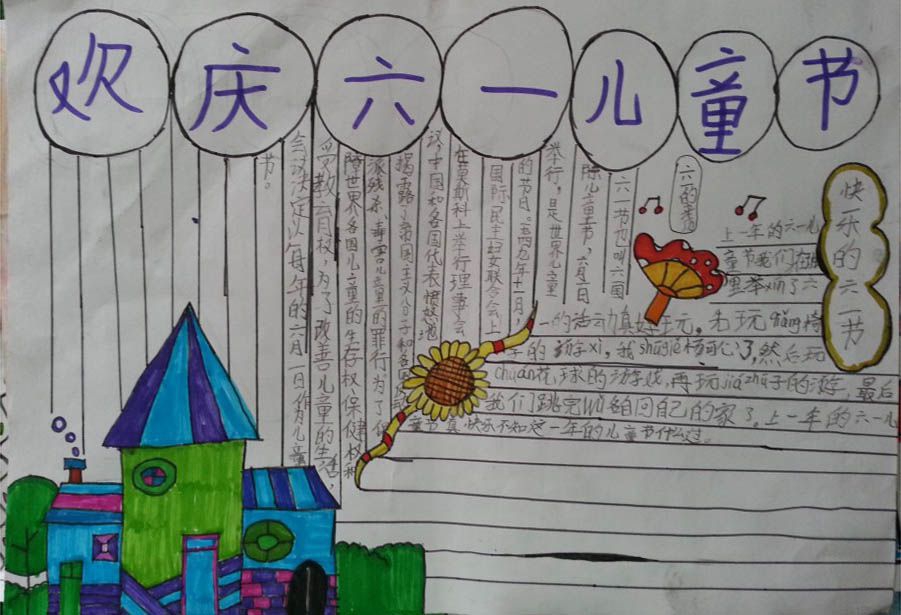 欢庆六一儿童节
六一的来历
六一节也叫六国
际儿童节,六月一日
举行,是世界儿童
的节日。一九四九年十一月
国际民主妇女联合会上
在莫斯科上举行理事会
议,中国和各国代表愤怒地
揭露了帝国主义分子和各国
派残杀、毒害儿童的罪行为了保
障世界各国儿童的生存权保健权和
受教育权,为了改善儿童的生活,
会议决定以每年的六月一日作为儿童
节。
快乐的六一节
上一年的六一儿
童节我们在
里举xin了六
一的活动真好王元。先玩qiǎng椅
子的游字xi,我shū gěi杨可心了,然后玩
chuán花球的游戏,再玩jiā zhū子的游字,最后
我们跳完wǔ各自回自己的家了。上一年的六一儿
童节真快乐不知这一年的儿童节什么过。